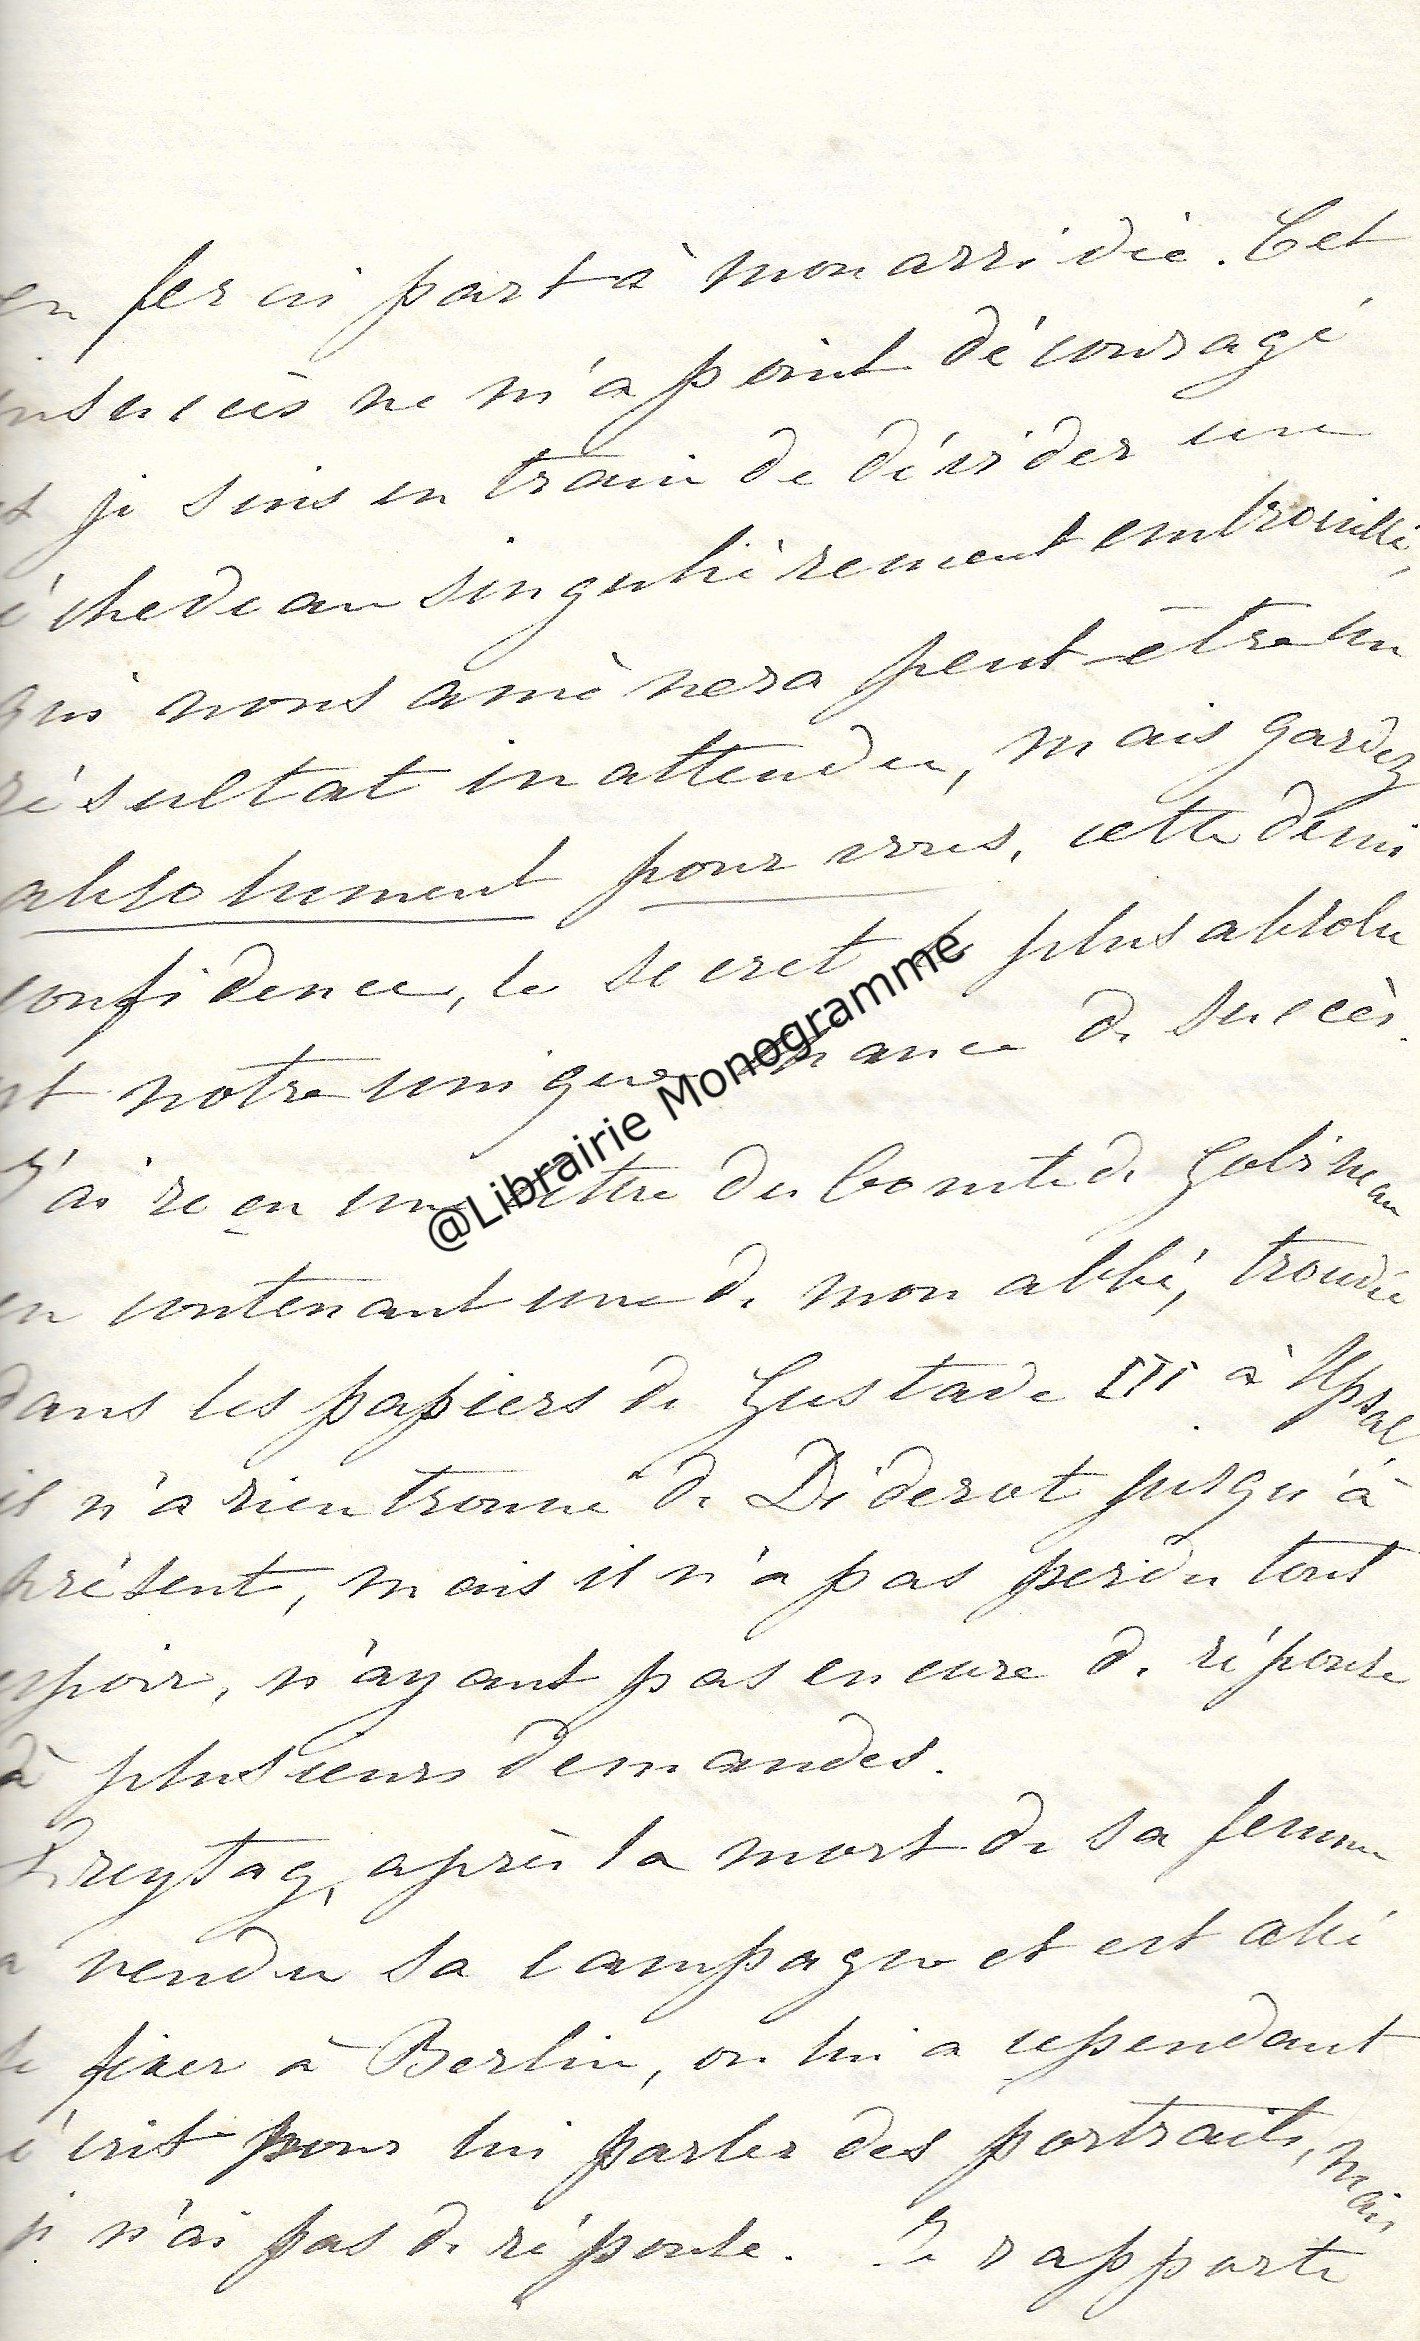 en ferai part à mon arrivée. Cet
insuccès ne m'a point découragé
et je suis en train de dévider un
écheveau singulièrement embrouillé,
qui nous amènera peut-être un
résultat inattendu, mais gardez
absolument pour vous, cette demi
confidence, le secret le plus absolu
est notre unique chance de succès.
J'ai reçu une lettre du Comte de Gobineau
en contenant une de mon abbé, trouvée
dans les papiers de Gustave III à Upsal
il n'a rien trouvé de Diderot jusqu'à
présent, mais il n'a pas perdu tout
espoir, n'ayant pas encore de réponse
à plusieurs demandes.
Freytag, après la mort de sa femme
a vendu sa campagne et est allé
se fixer à Berlin, on lui a cependant
écrit pour lui parler des portraits, mais
je n'ai pas de réponse. Je rapporte
@Librairie Monogramme